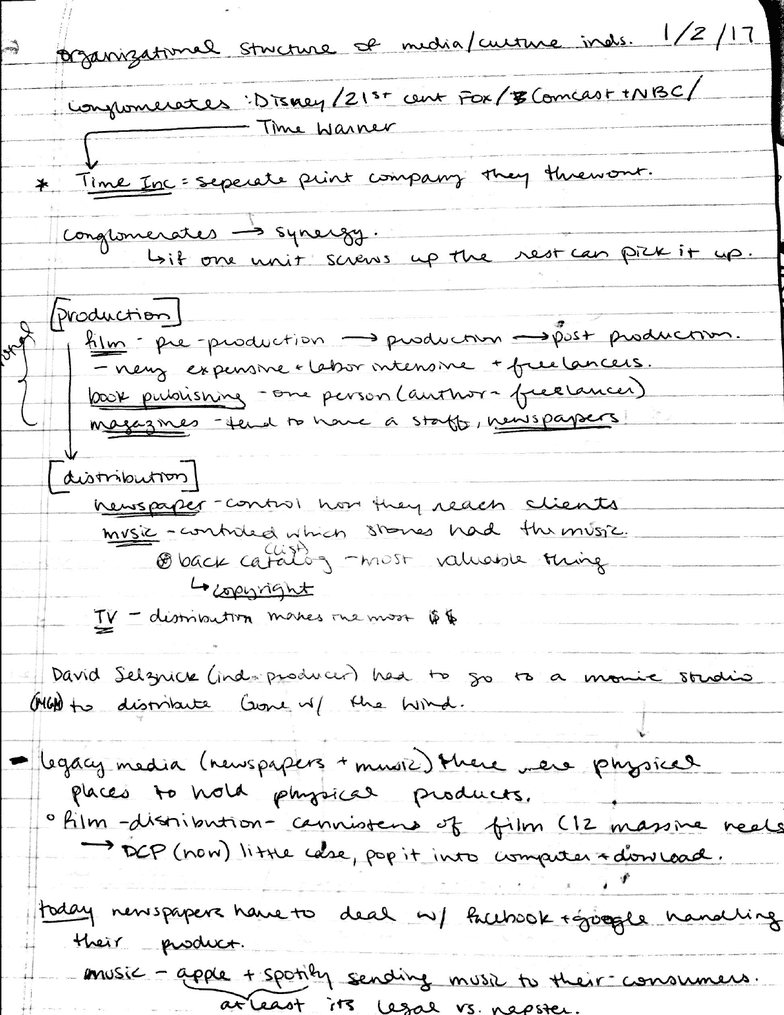 organizational structure of media/culture inds. 1/2/17
conglomerates : Disney/21st cent Fox/Comcast + NBC/
Time Warner
* Time Inc = seperate print company they threw out.
conglomerates → synergy.
↳ if one unit screws up the rest can pick it up.
[production]
film - pre-production → production → post production.
- very expensive + labor intensive + freelancers.
book publishing - one person (author - freelancer)
magazines - tend to have a staff, newspapers
[distribution]
newspaper - control how they reach clients
music - controlled which stores had the music.
(list)
back catalog - most valuable thing
↳ copyright
TV - distribution makes the most $$
David Selznick (ind. producer) had to go to a movie studio
(MGM) to distribute Gone w/ the Wind.
- legacy media (newspapers + music) there were physical
places to hold physical products.
° film - distribution - cannisters of film (12 massive reels
→ DCP (now) little case, pop it into computer + dowload.
today newspapers have to deal w/ facebook + google handling
their product.
music - apple + spotify sending music to their consumers.
at least its legal vs. napster.